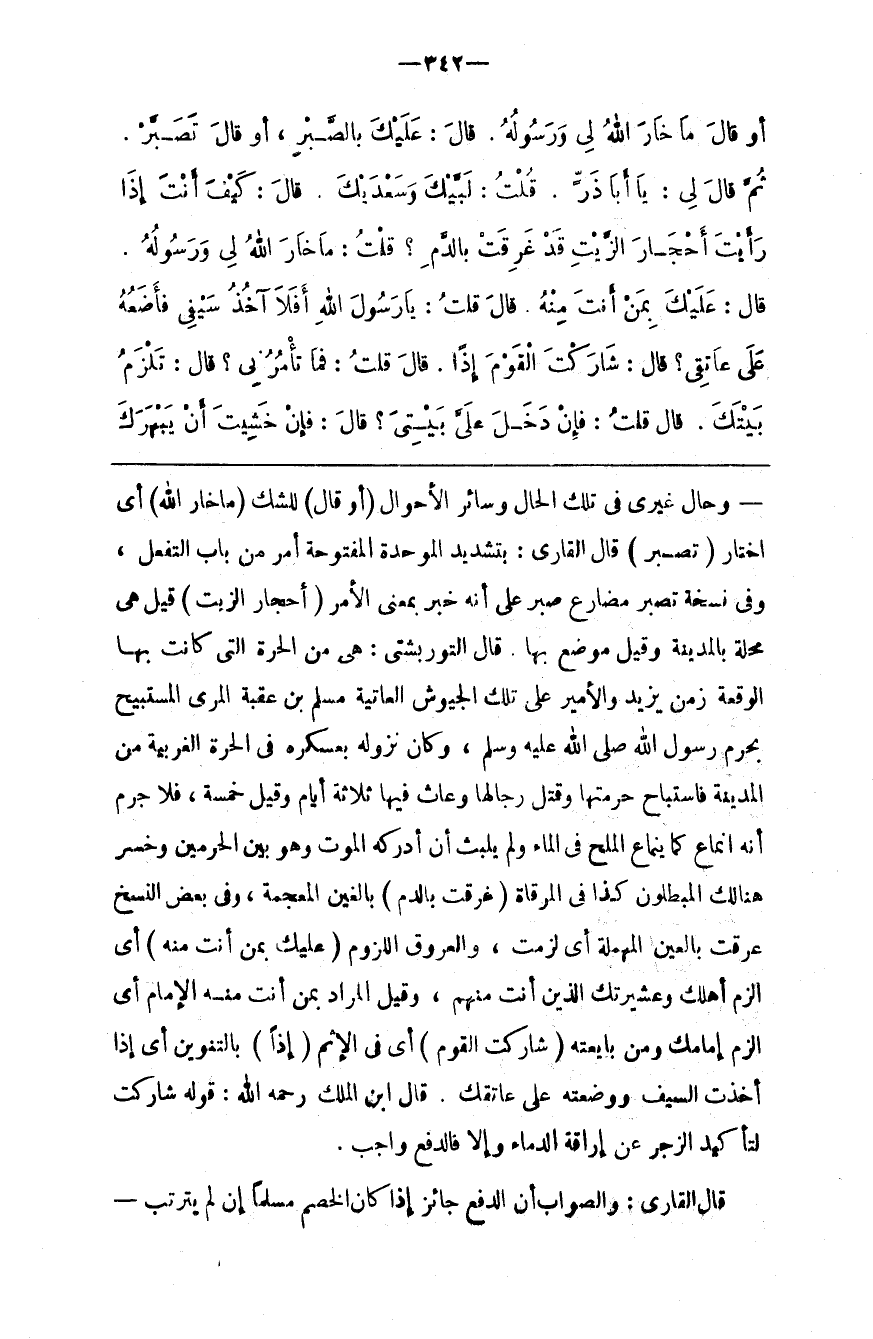 —٣٤٢—
أو قالَ مَا خَارَ اللهُ لِى وَرَسُولُهُ . قالَ : عَلَيْكَ بالصَّـبْرِ ، أو قالَ تَصَـبَّرْ .
ثُمَّ قالَ لِى : يَا أَبَا ذَرٍّ . قُلْتُ : لَبَّيْكَ وَسَعْدَيْكَ . قالَ : كَيْفَ أَنْتَ إذَا
رَأَيْتَ أَحْجَـارَ الزَّيْتِ قَدْ غَرِقَتْ بالدَّمِ ؟ قلْتُ : مَاخارَ اللهُ لِى وَرَسُولُهُ .
قال : عَلَيْكَ بِمَنْ أَنتَ مِنْهُ . قالَ قلتُ : يارَسُولَ اللهِ أَفَلاَ آخُذُ سَيْفِى فأَضَعُهُ
عَلَى عاَتِقِى؟ قال : شَارَكْتَ الْقَوْمَ إذًا . قالَ قلتُ : فَما تَأْمُرُنِى ؟ قال : تَلْزَمُ
بَيْتَكَ . قال قلتُ : فإنْ دَخَـلَ علَىَّ بَيْـتِىَ؟ قالَ : فإنْ خَشِيتَ أَنْ يَبْهَرَكَ
— وحال غيرى فى تلك الحال وسائر الأحوال (أو قال) للشك (ماخار الله) أى
اختار ( تصـبر ) قال القارى : بتشديد الموحدة المفتوحة أمر من باب التفعل ،
وفى نسخة تصبر مضارع صبر على أنه خبر بمعنى الأمر ( أحجار الزيت ) قيل هى
محلة بالمدينة وقيل موضع بها . قال التوربشتى : هى من الحرة التى كانت بهـا
الوقعة زمن يزيد والأمير على تلك الجيوش العاتية مسلم بن عقبة المرى المستبيح
بحرم رسول الله صلى الله عليه وسلم ، وكان نزوله بعسكره فى الحرة الغربية من
المدينة فاستباح حرمتها وقتل رجالها وعاث فيها ثلاثة أيام وقيل خمسة ، فلا جرم
أنه انماع كما ينماع الملح فى الماء ولم يلبث أن أدركه الموت وهو بين الحرمين وخسر
هنالك المبطلون كذا فى المرقاة ( غرقت بالدم ) بالغين المعجمة ، وفى بعض النسخ
عرقت بالعين المهملة أى لزمت ، والعروق اللزوم ( عليك بمن أنت منه ) أى
الزم أهلك وعشيرتك الذين أنت منهم ، وقيل المراد بمن أنت منـه الإمام أى
الزم إمامك ومن بايعته ( شاركت القوم ) أى فى الإثم ( إذاً ) بالتنوين أى إذا
أخذت السيف ووضعته على عاتقك . قال ابن الملك رحمه الله : قوله شاركت
لتأكيد الزجر عن إراقة الدماء وإلا فالدفع واجب .
قال القارى : والصواب أن الدفع جائز إذا كان الخصم مسلماً إن لم يترتب —